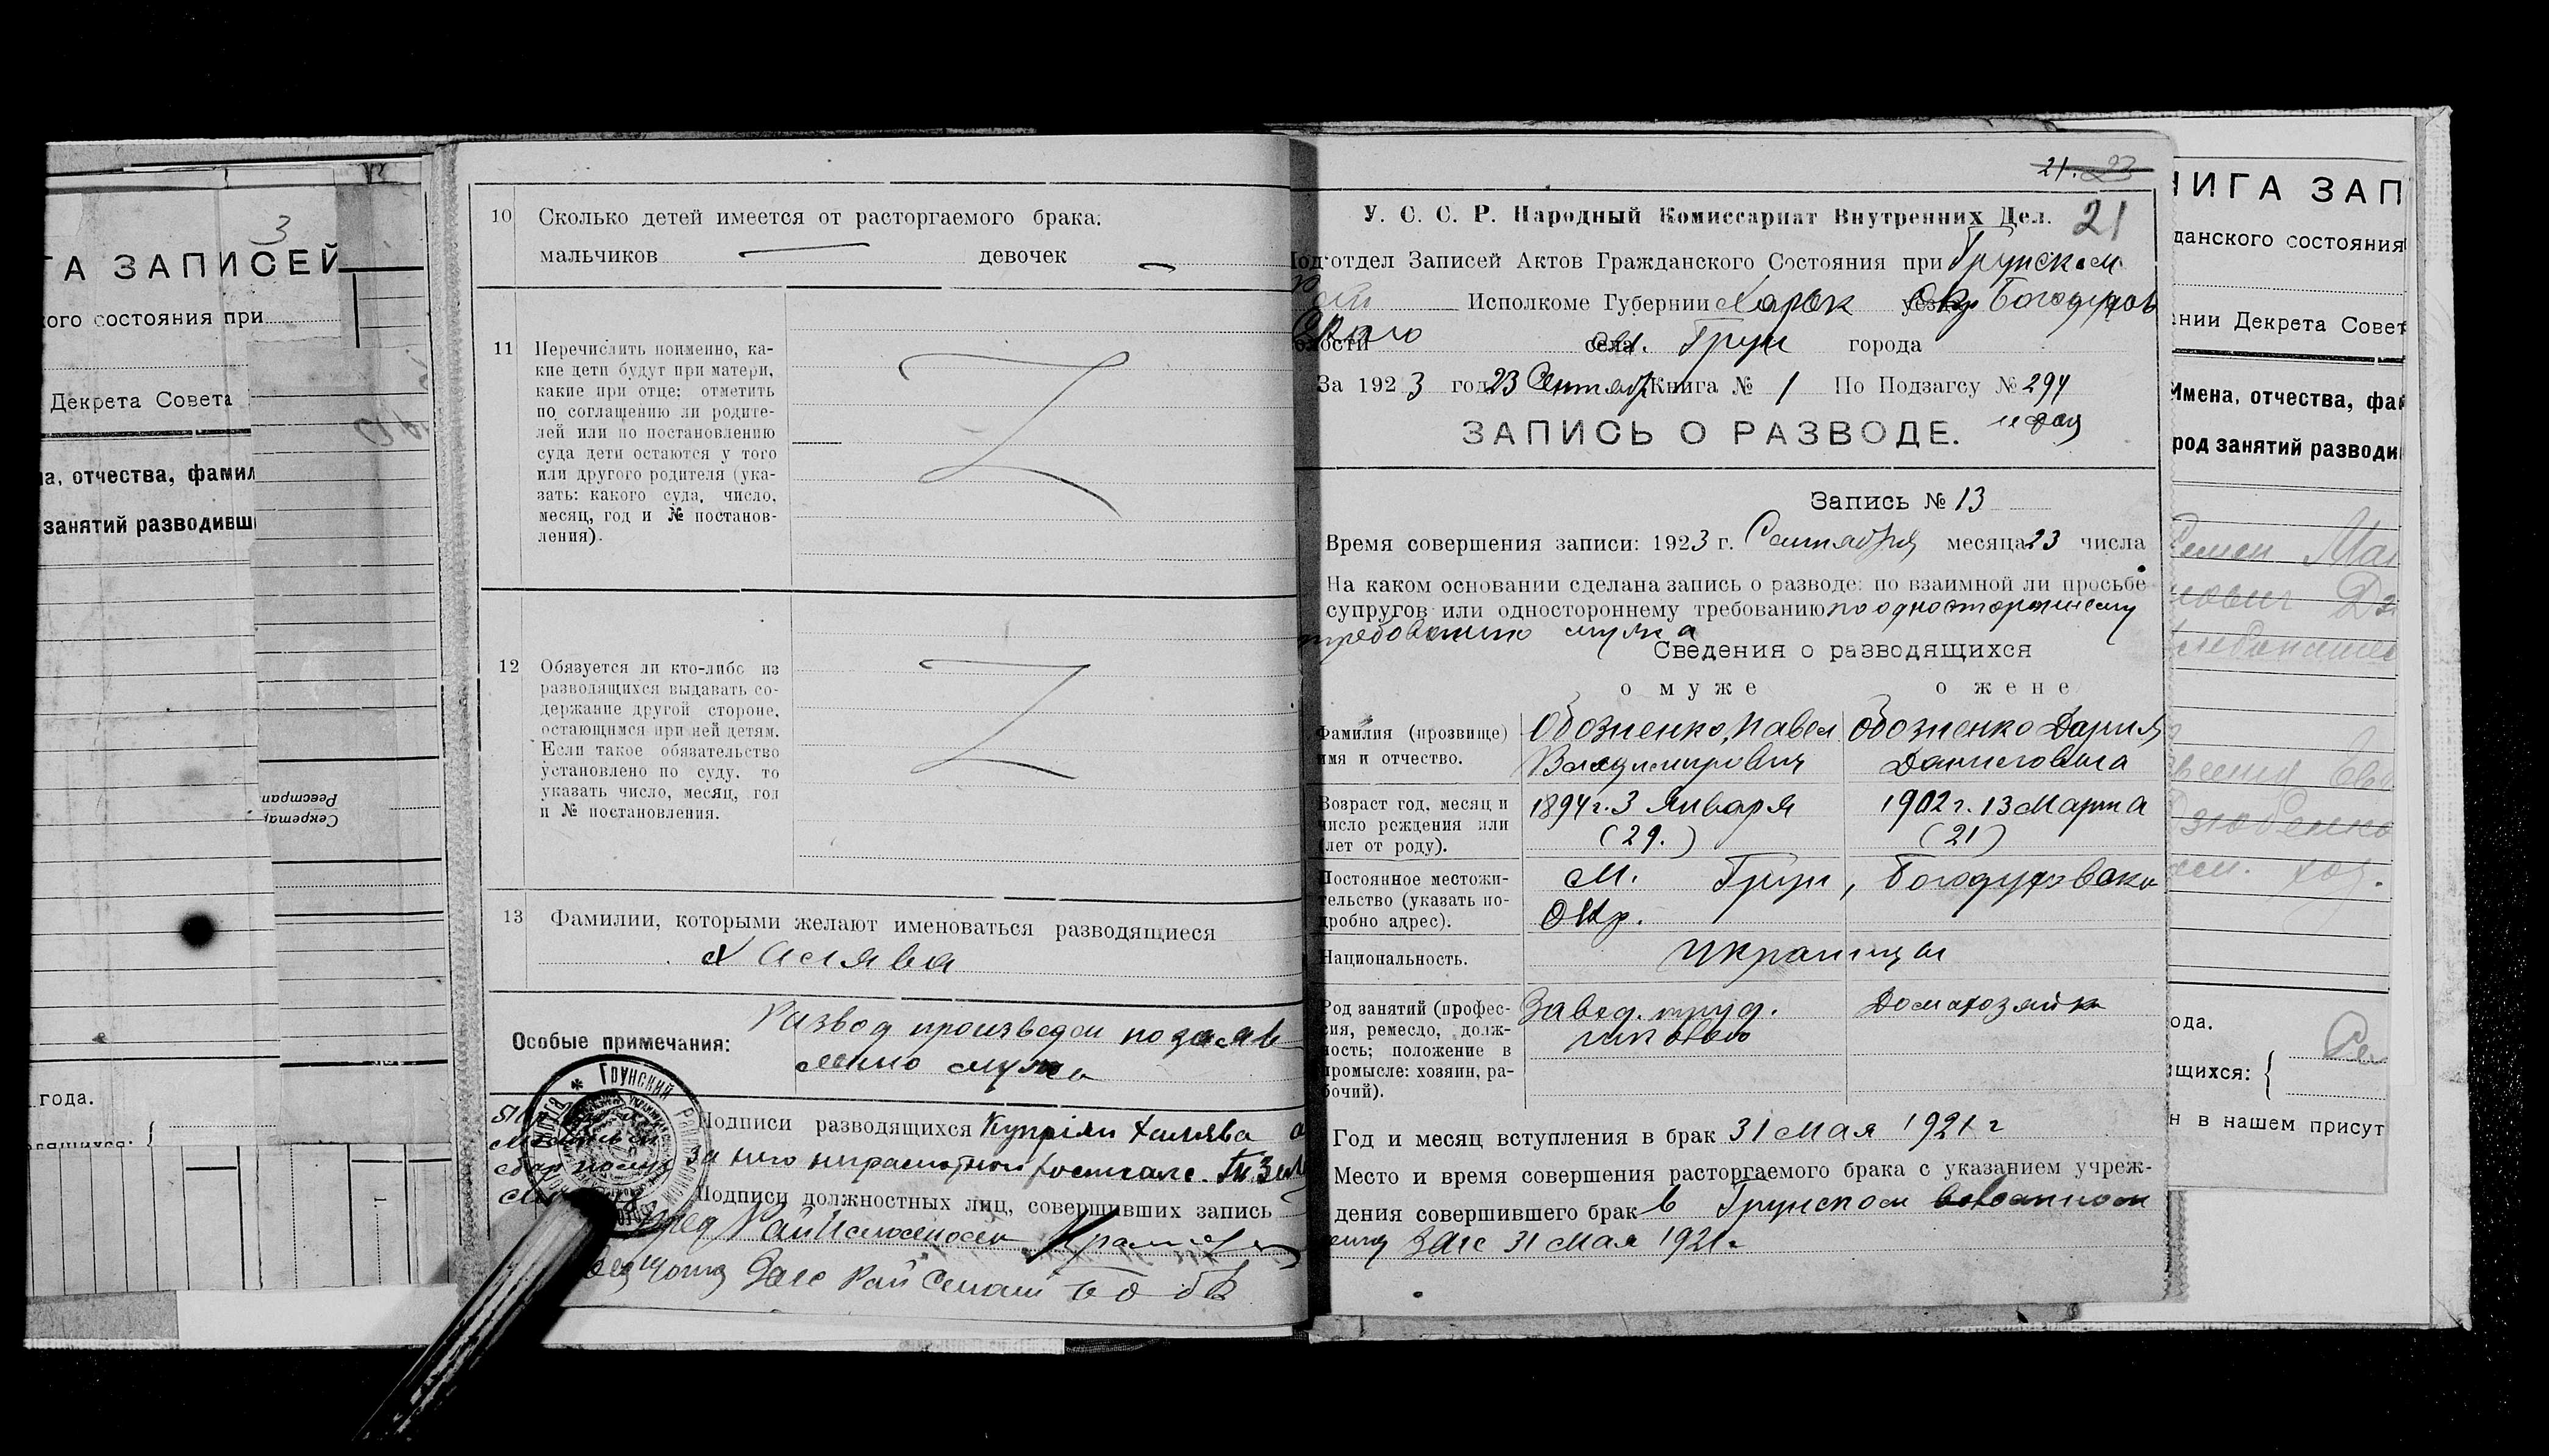 3
ГА ЗАПИСЕЙ
ого состояния при
Декрета Совета
а, отчества, фамил
занятий разводивш
Реестрап
Секретар
года.
10 Сколько детей имеется от расторгаемого брака:
мальчиков — девочек —
11 Перечислить поименно, ка-
кие дети будут при матери,
какие при отце: отметить
по соглашению ли родите-
лей или по постановлению
суда дети остаются у того
или другого родителя (ука-
зать: какого суда, число,
месяц, год и № постанов-
ления).
12 Обязуется ли кто-либо из
разводящихся выдавать со-
держание другой стороне,
остающимся при ней детям.
Если такое обязательство
установлено по суду, то
указать число, месяц, год
и № постановления.
13 Фамилии, которыми желают именоваться разводящиеся
Халява
Особые примечания: Развод произведен по заяв
лению мужа
ГРУНСКИЙ
Подписи разводящихся Купріян Халява а
за него неграмотного
Подписи должностных лиц, совершивших запись
Пред РайИсполкома
Загс Рай
21. 23
21
У. С. С. Р. Народный Комиссариат Внутренних Дел.
Под'отдел Записей Актов Гражданского Состояния при Грунском
Рай Исполкоме Губернии Харьк Окр Богодухов
ского м. Грунь города
За 1923 год 23 Сентябр Книга № 1 По Подзагсу № 294
ЗАПИСЬ О РАЗВОДЕ.
Запись № 13
Время совершения записи: 1923 г. Сентября месяца 23 числа
На каком основании сделана запись о разводе: по взаимной ли просьбе
супругов или одностороннему требованию по одностороннему
требованию мужа
Сведения о разводящихся
о муже о жене
Фамилия (прозвище) Обозненко, Павел Обозненко Дария
имя и отчество. Владимирович Даниловна
Возраст год, месяц и 1894 г. 3 Января 1902 г. 13 Марта
число рождения или (29.) (21)
(лет от роду).
Постоянное местожи- м. Грунь, Богодуховско
тельство (указать по-
дробно адрес). Окр.
Национальность. Украинцы
Род занятий (профес- Завед. труд. Домахозяйка
сия, ремесло, долж- школою
ность; положение в
промысле: хозяин, ра-
бочий).
Год и месяц вступления в брак 31 Мая 1921 г
Место и время совершения расторгаемого брака с указанием учреж-
дения совершившего брак в Грунском
Загс 31 Мая 1921 г
НИГА ЗАП
данского состояния
нии Декрета Совет
Имена, отчества, фам
род занятий разводи
ода.
щихся:
н в нашем присут